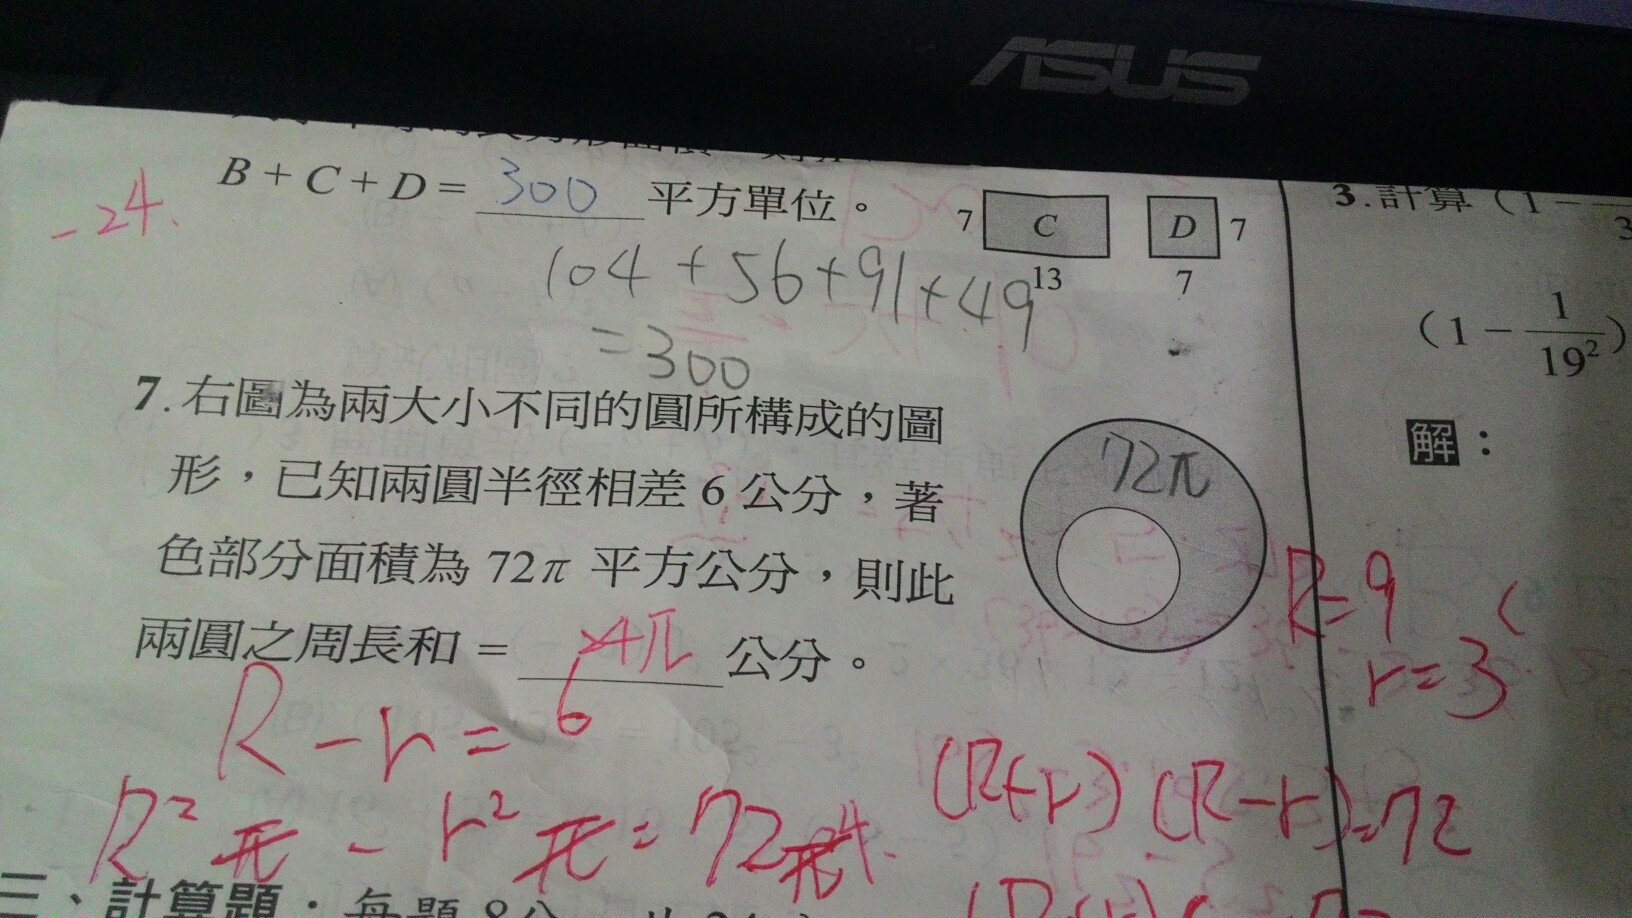 ASUS
B + C + D = 300 平方單位。
-24.
7 C 13
D 7 7
104 + 56 + 91 + 49
= 300
7. 右圖為兩大小不同的圓所構成的圖
形，已知兩圓半徑相差 6 公分，著
色部分面積為 72π 平方公分，則此
兩圓之周長和 = 24π 公分。
72π
R - r = 6
R²π - r²π = 72π
R=9
r=3
(R+r)(R-r)=72
三、計算題：每題 8分
3. 計算 (1 -
(1 - 1/19²)
解：